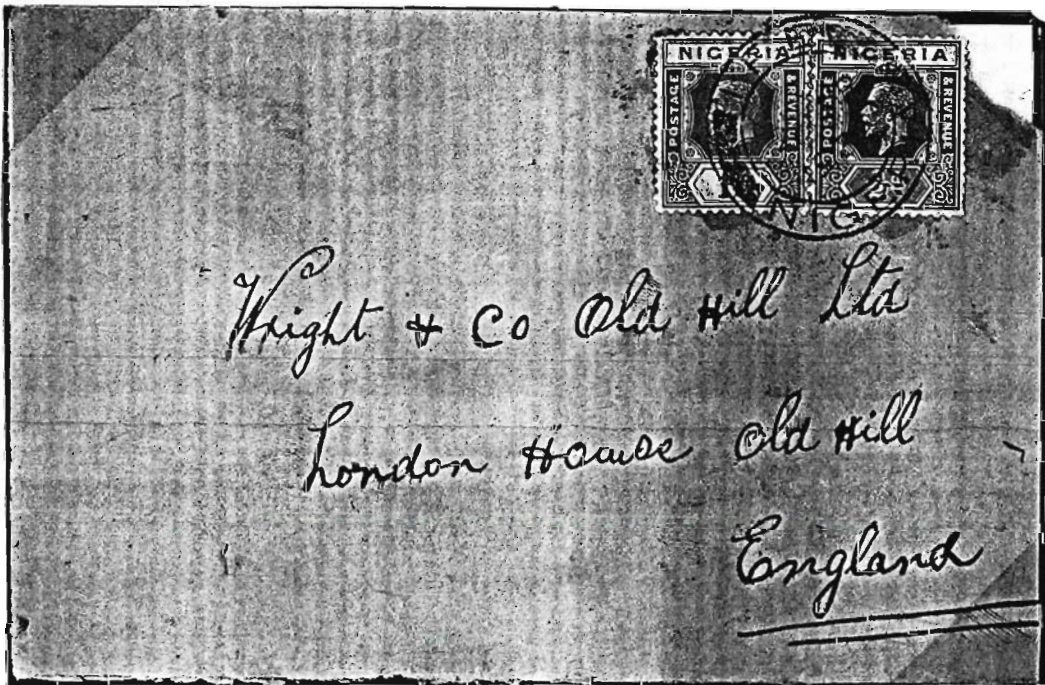 NIGERIA NIGERIA
POSTAGE & REVENUE POSTAGE & REVENUE
Wright & Co Old Hill Ltd
London House Old Hill
England